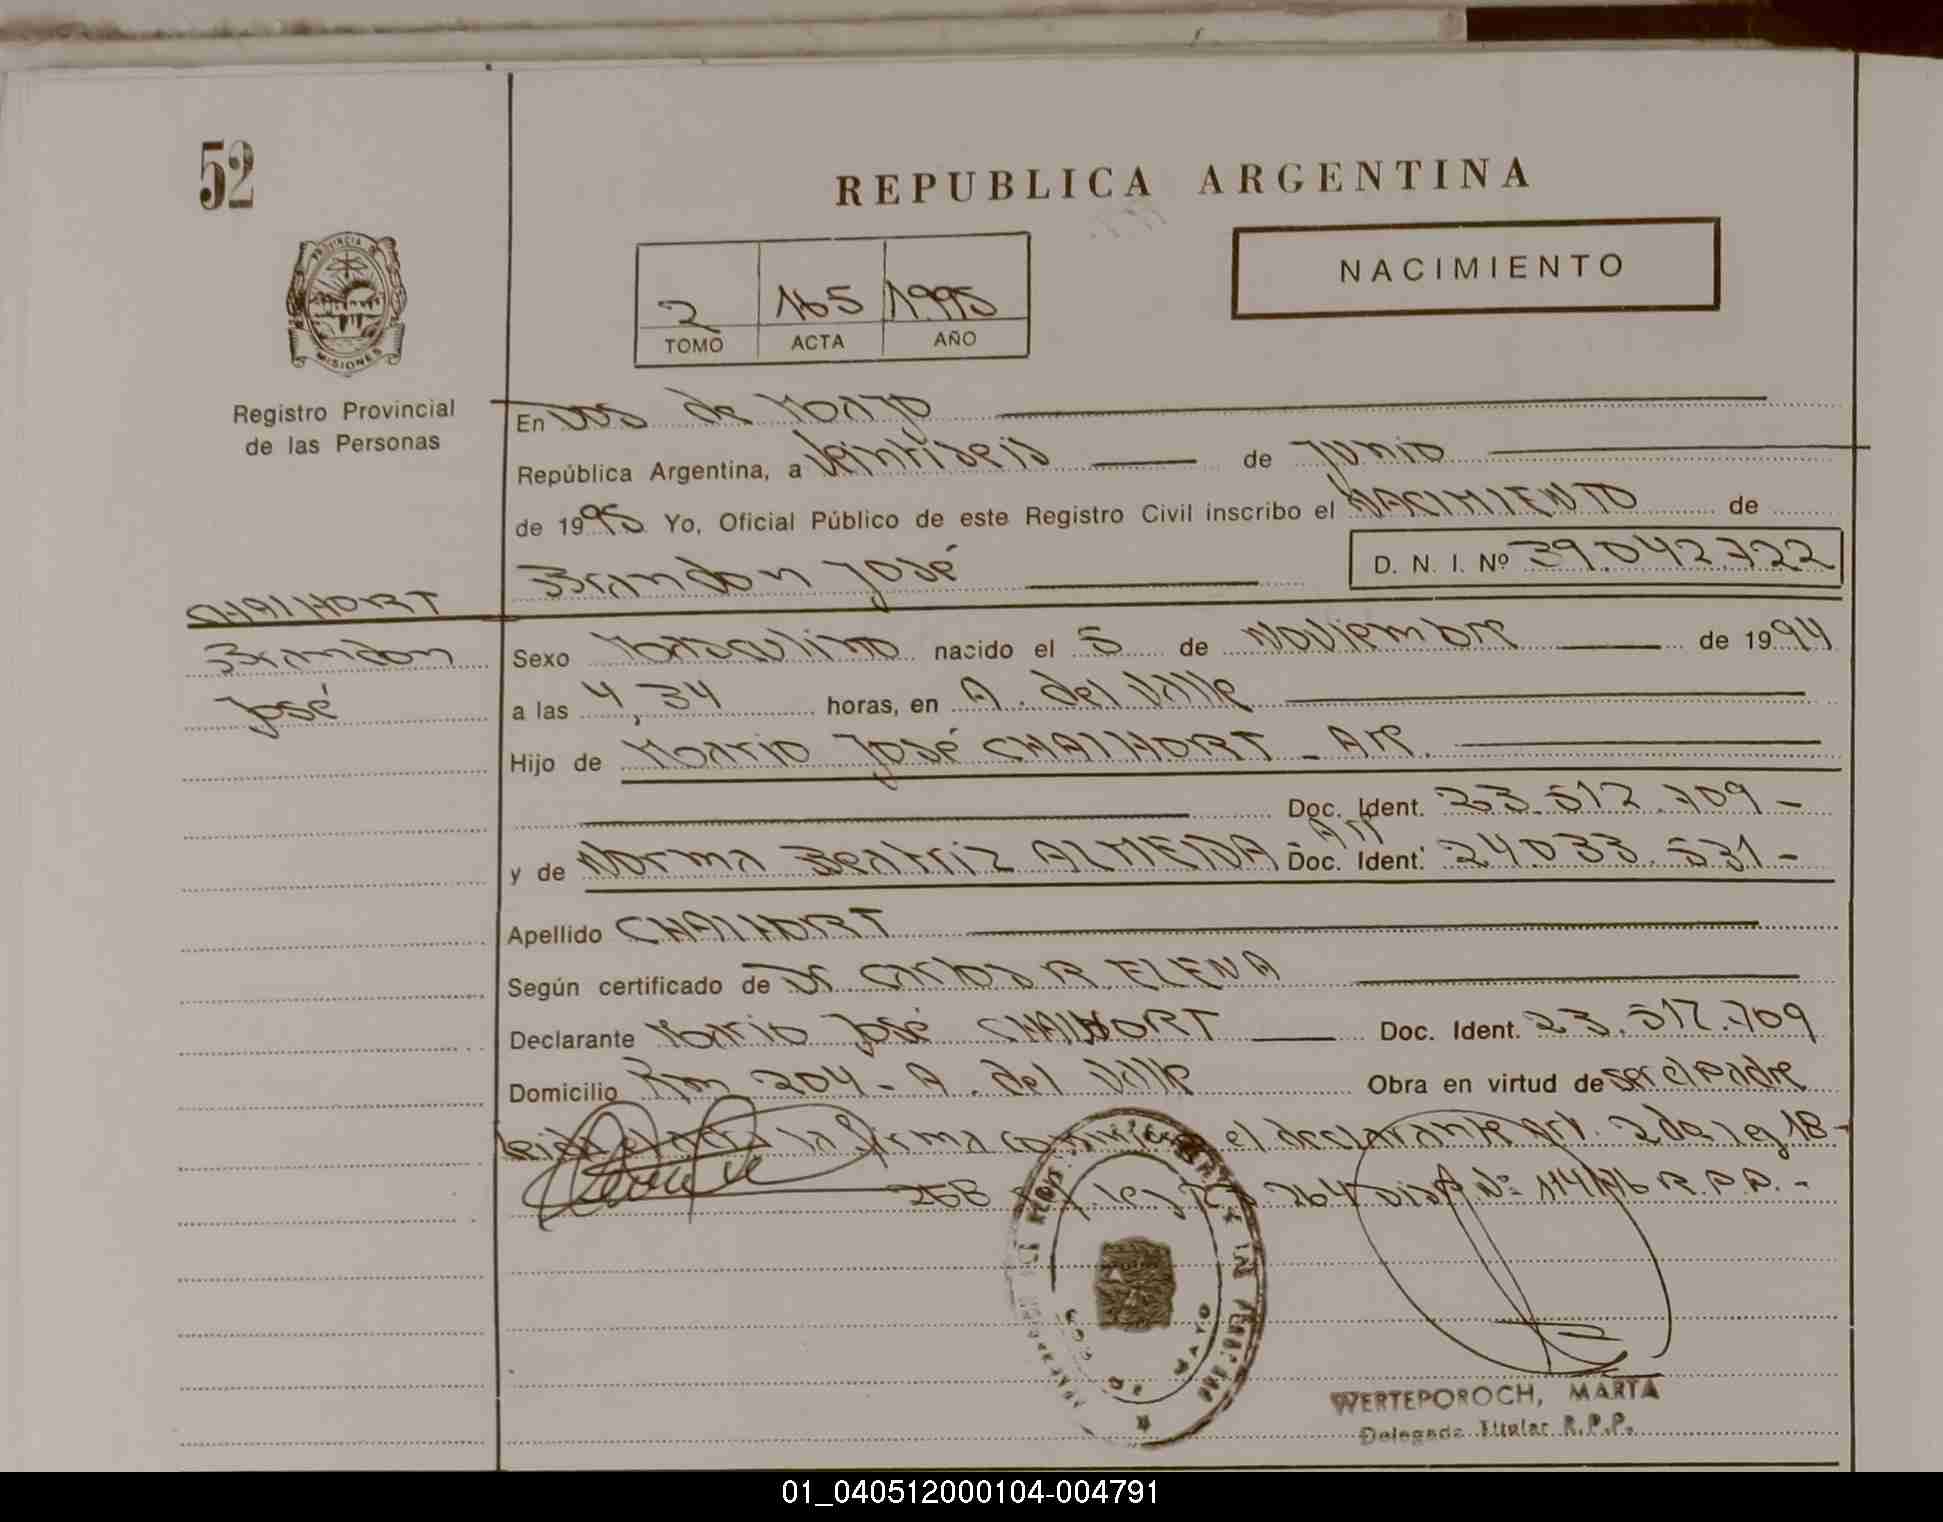 52
REPUBLICA ARGENTINA
NACIMIENTO
2 165 1995
TOMO ACTA AÑO
PROVINCIA DE
MISIONES
Registro Provincial
de las Personas
En Dos de Mayo
República Argentina, a Veintiseis de Junio
de 1995 Yo, Oficial Público de este Registro Civil inscribo el NACIMIENTO de
Brandon José D. N. I. Nº 39.042.722
CHAIHORT
Brandon
José
Sexo Masculino nacido el 5 de Noviembre de 1994
a las 4,34 horas, en A. del Valle
Hijo de Mario José CHAIHORT - Arg.
Doc. Ident. 23.517.709 -
y de Norma Beatriz ALMEIDA - Doc. Ident. 24.033.531 -
Apellido CHAIHORT
Según certificado de Dr Carlos R. ELENA
Declarante Mario José CHAIHORT Doc. Ident. 23.517.709
Domicilio Km 204 - A. del Valle Obra en virtud de ser el padre
Leida el acta la firma conmigo el declarante art. 2 de
264 Disp Nº 114/76 R.P.P. -
WERTEPOROCH, MARTA
Delegada Titular R.P.P.
01_040512000104-004791